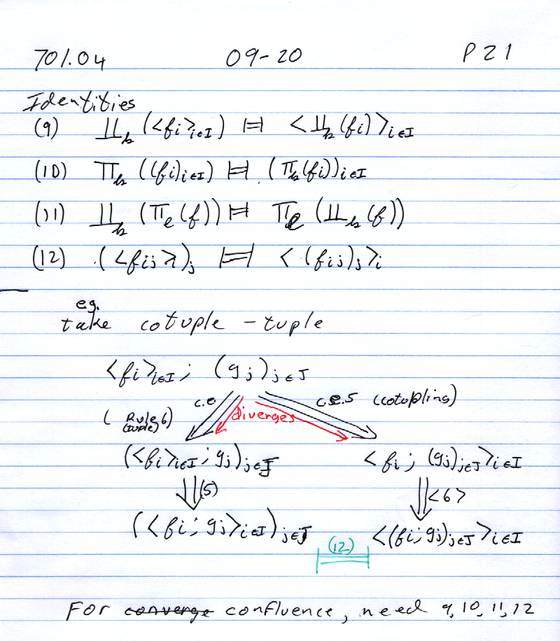 701.04 09-20 P21
Identities
(9) ⨿_k (<fi>_{i∈I}) ⊨⫤ <⨿_k (fi)>_{i∈I}
(10) Π_k ((fi)_{i∈I}) ⊨⫤ (Π_k (fi))_{i∈I}
(11) ⨿_k (Π_e (f)) ⊨⫤ Π_e (⨿_k (f))
(12) (<fij>_i)_j ⊨⫤ <(fij)_j>_i
eg.
take cotuple - tuple
<fi>_{i∈I} ; (gj)_{j∈J}
c.e c.e.5 (cotupling)
( Rule 6) diverges
(tuple)
(<fi>_{i∈I} ; gj)_{j∈J} <fi ; (gj)_{j∈J}>_{i∈I}
(5) <6>
(<fi ; gj>_{i∈I})_{j∈J} (12) <(fi ; gj)_{j∈J}>_{i∈I}
For converge confluence, need 9, 10, 11, 12